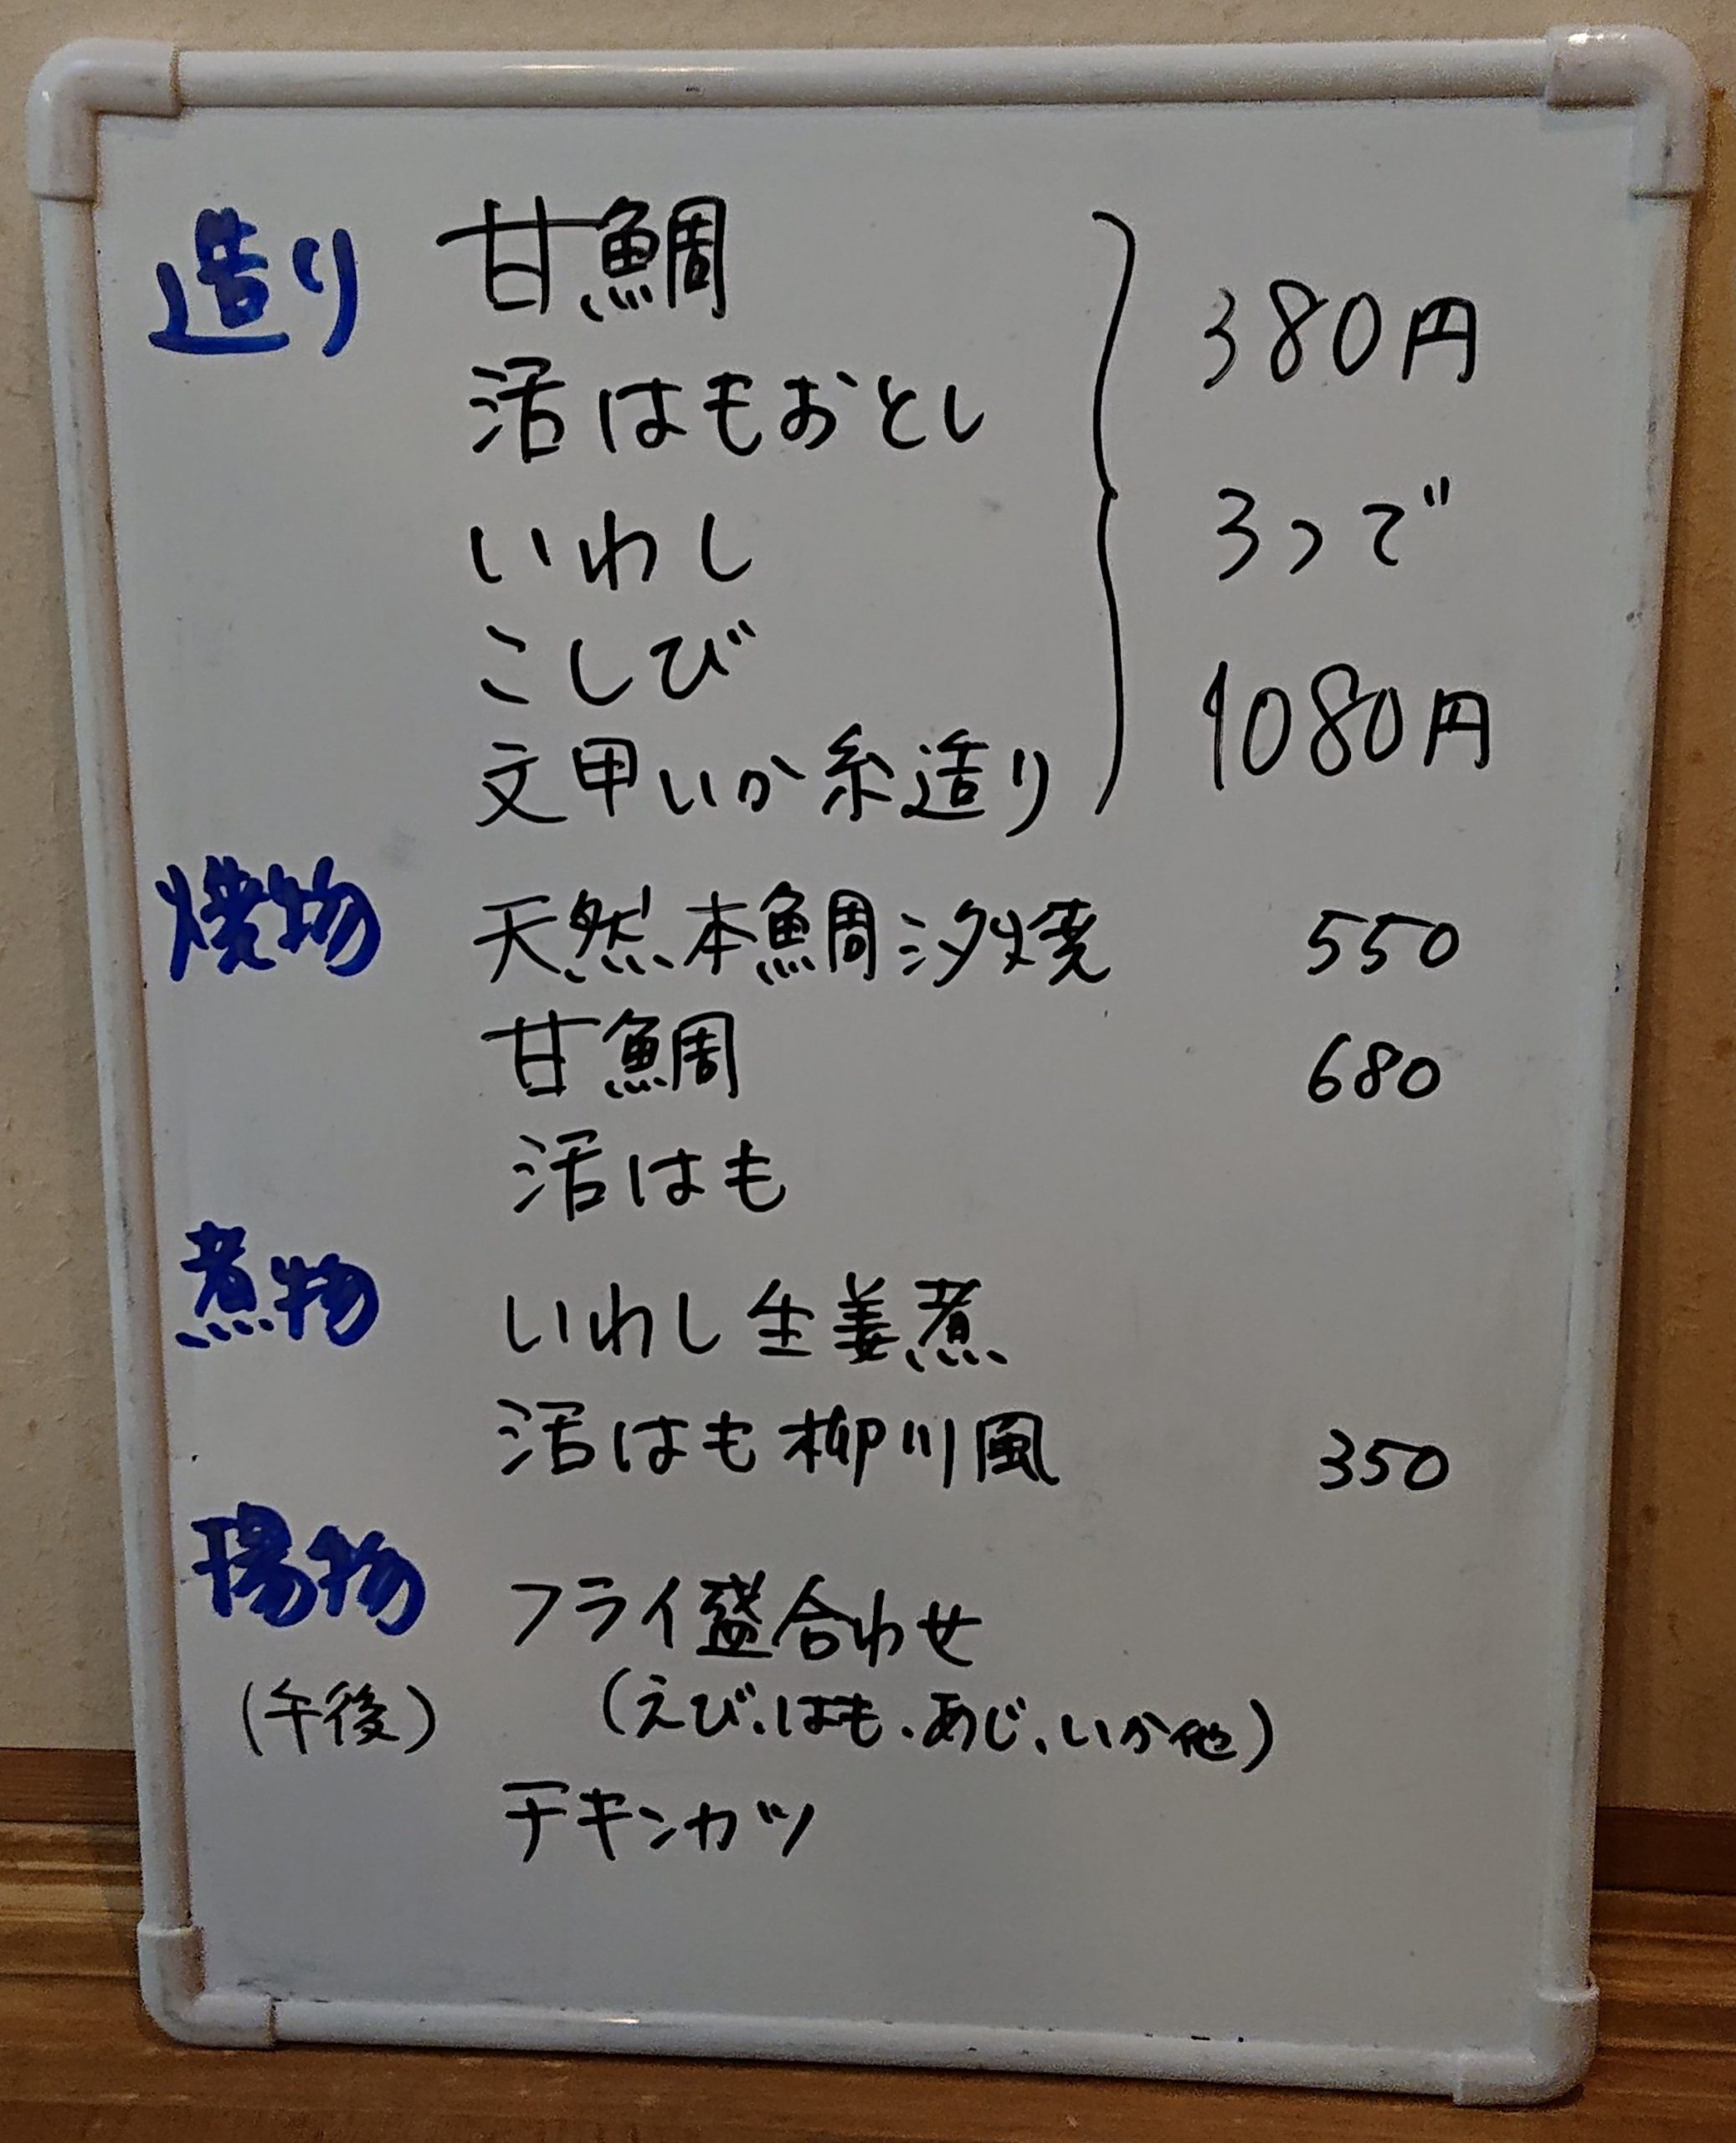 造り 甘鯛 380円
活はもおとし
いわし 3つで
こしび
文甲いか糸造り 1080円
焼物 天然本鯛汐焼 550
甘鯛 680
活はも
煮物 いわし生姜煮
活はも柳川風 350
揚物 フライ盛合わせ
(午後) (えび、はも、あじ、いか他)
チキンカツ